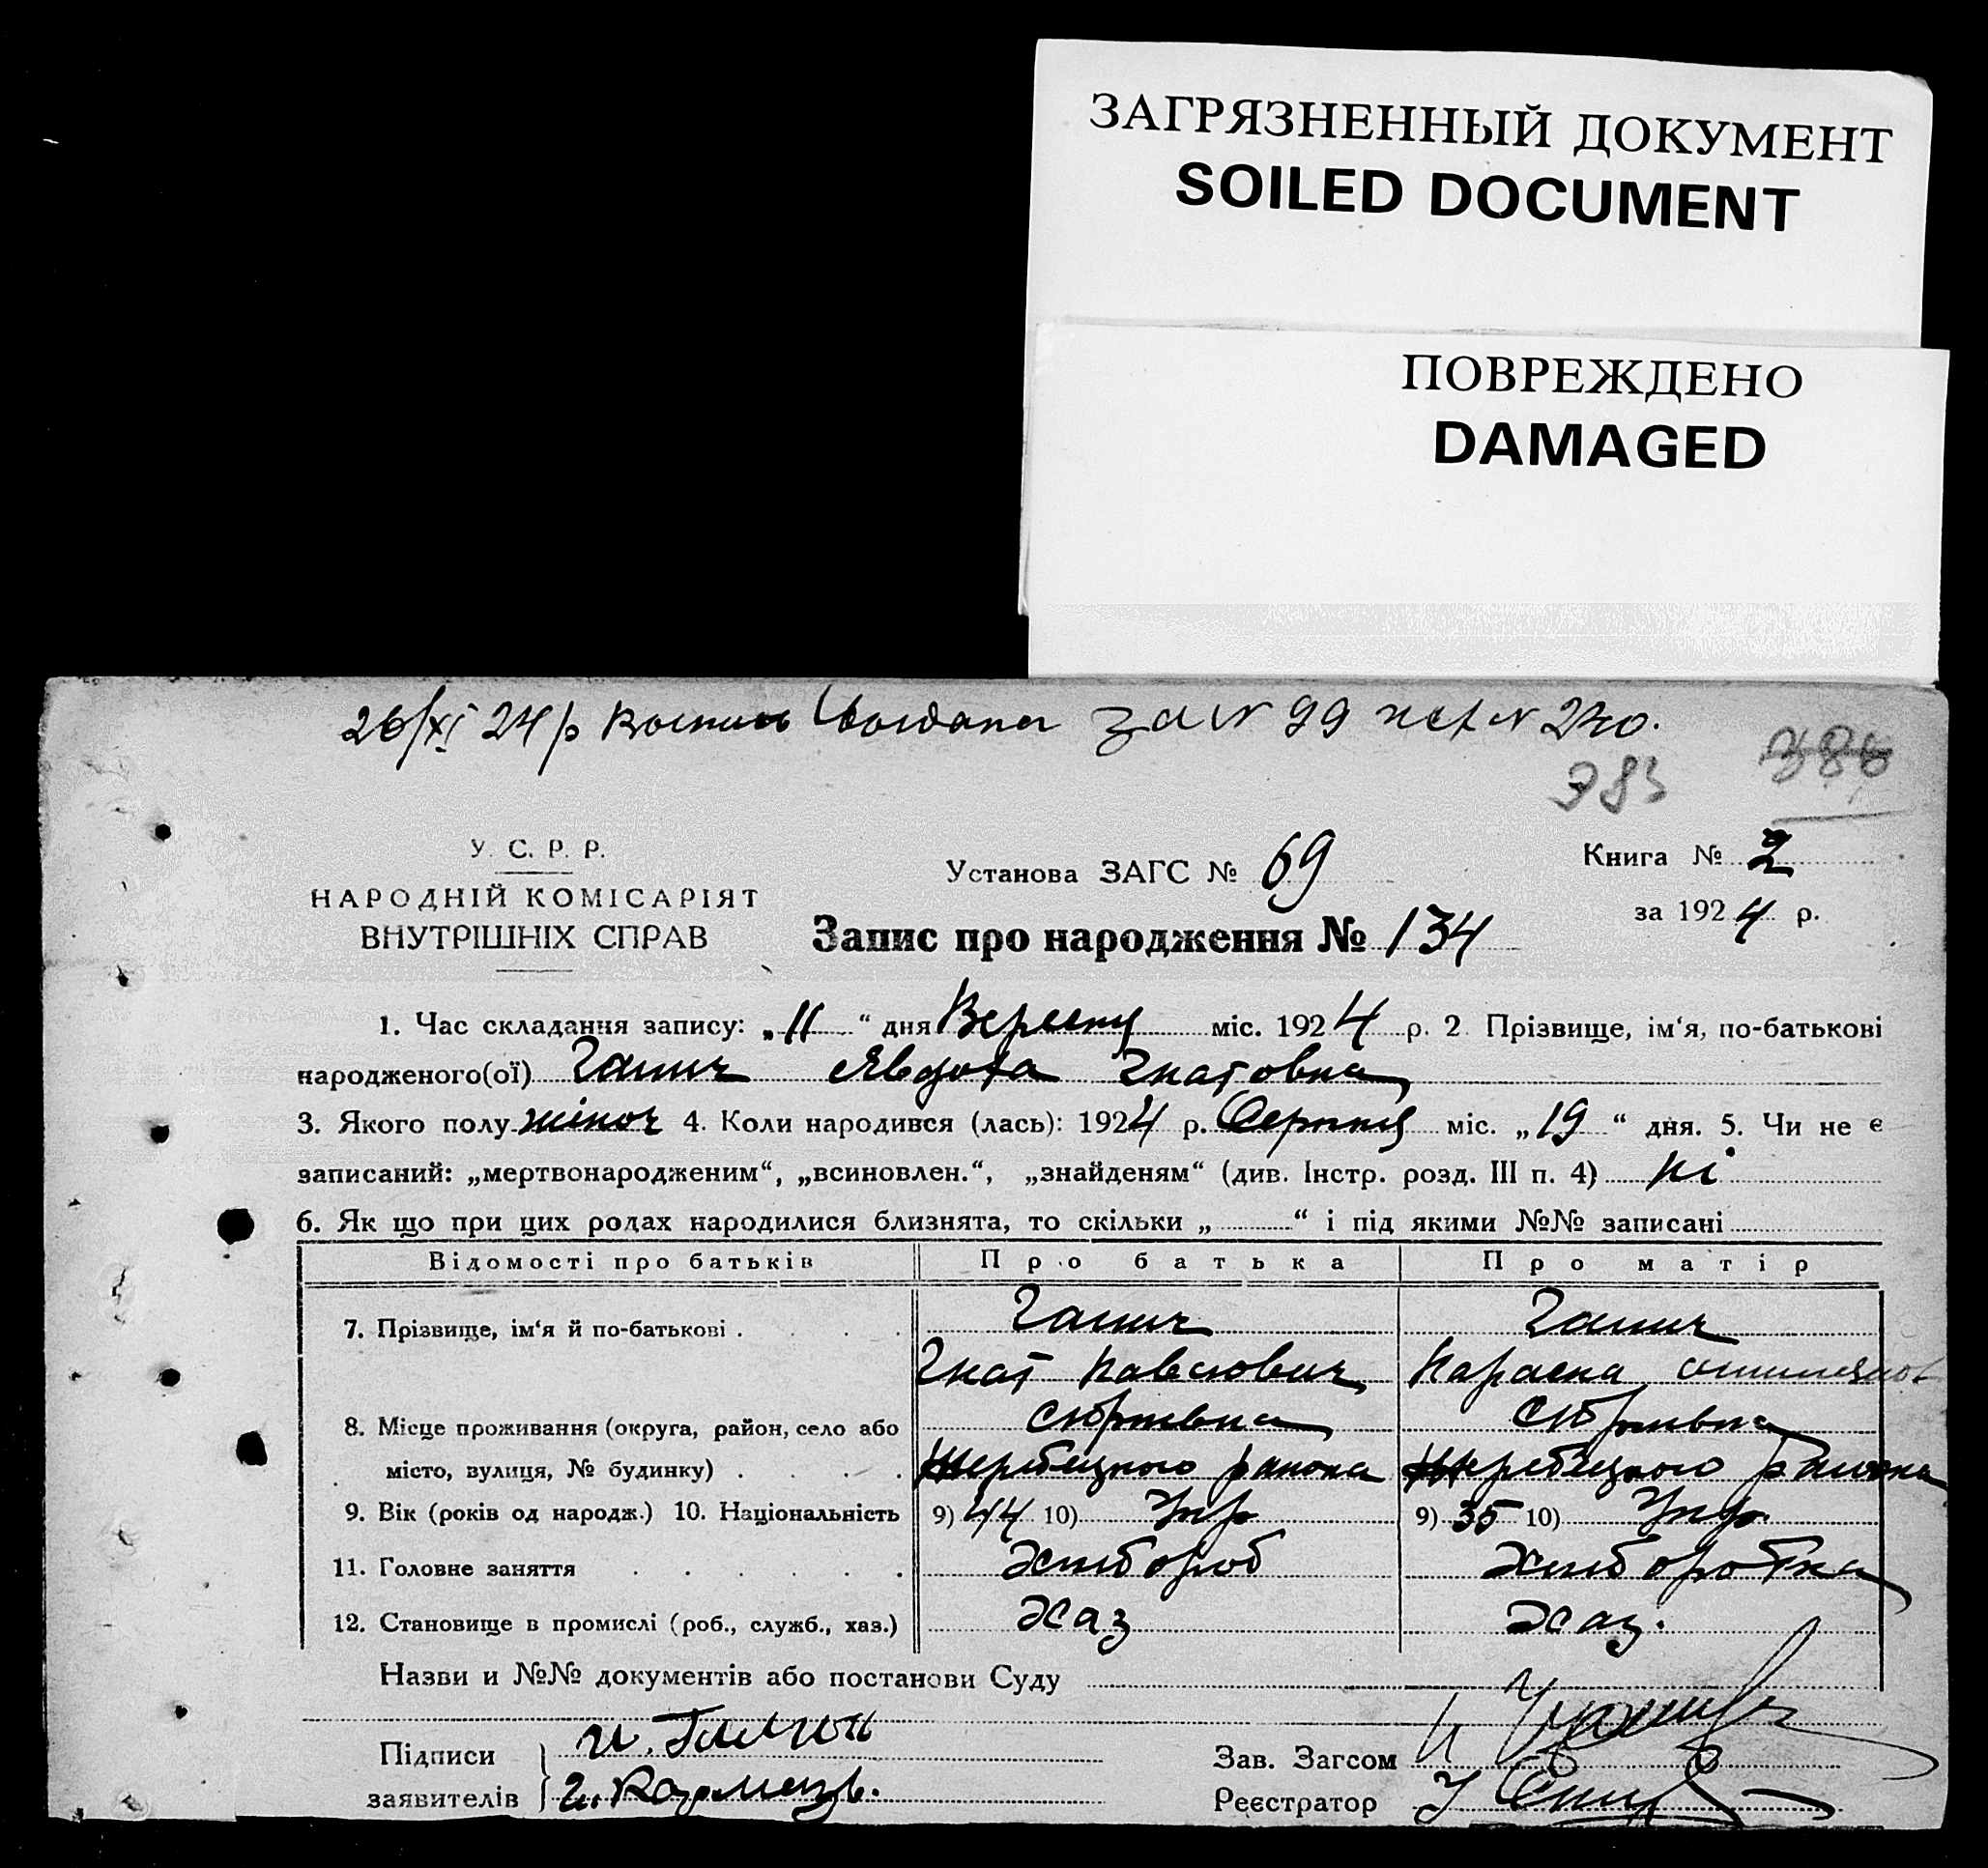 ЗАГРЯЗНЕННЫЙ ДОКУМЕНТ
SOILED DOCUMENT
ПОВРЕЖДЕНО
DAMAGED
26/XI 24 р за N 99 N 240.
383 386
У. С. Р. Р.
НАРОДНІЙ КОМІСАРІЯТ
ВНУТРІШНІХ СПРАВ
Установа ЗАГС № 69
Книга № 2
за 1924 р.
Запис про народження № 134
1. Час складання запису: „11“ дня Вересня міс. 1924 р. 2 Прізвище, ім‘я, по-батькові
народженого(ої) Явдоха Гнатовна
3. Якого полу жіноч 4. Коли народився (лась): 1924 р. Серпня міс. „19“ дня. 5. Чи не є
записаний: „мертвонародженим“, „всиновлен.“, „знайденям“ (див. Інстр. розд. III п. 4) ні
6. Як що при цих родах народилися близнята, то скільки „ “ і під якими №№ записані
Відомості про батьків Про батька Про матір
7. Прізвище, ім‘я й по-батькові
Гнат Павлович Параска
8. Місце проживання (округа, район, село або
місто, вулиця, № будинку) Жеребецкого района Жеребецкого района
9. Вік (років од народж.) 10. Національність 9) 44 10) Укр 9) 35 10) Укр.
11. Головне заняття Хлибороб Хлиборобка
12. Становище в промислі (роб., служб., хаз.) Хаз Хаз.
Назви и №№ документів або постанови Суду
Підписи
заявителів
Зав. Загсом
Реєстратор